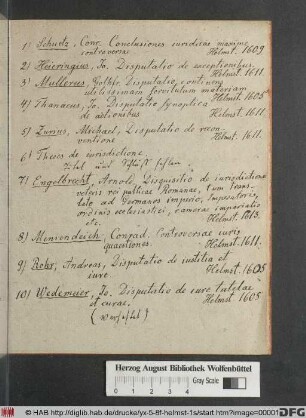 1) Schultz, Conr. Conclusiones juridicae maxime
controversae Helmst. 1609
2) Heieringius, Jo. Disputatio de exceptionibus.
Helmst. 1611.
3) Mullerus, Gothfr. Disputatio, continens
utilissimam servitutum materiam
Helmst. 1605
4) Thanaeus, Jo. Disputatio synoptica
de actionibus Helmst. 1611
5) Michael, Disputatio de recon-
ventione Helmst. 1611.
6) Theses de jurisdictione
Titel und
7) Engelbrecht, Arnold, Disquisitio de jurisdictione
veteris rei publicae Romanae, tum trans-
lato ad Germanos imperio, Imperatoris,
ordinis ecclesiastici, camerae imperialis
etc. Helmst. 1613.
8) Conrad. Controversae iuris
quaestiones. Helmst. 1611.
9) Rohr, Andreas, Disputatio de iustitia et
iure. Helmst. 1605
10) Wedemeier, Jo. Disputatio de iure tutelae
et curae. Helmst. 1605
Herzog August Bibliothek Wolfenbüttel
Gray Scale
© HAB http://diglib.hab.de/drucke/yx-5-8f-helmst-1s/start.htm?image=00001